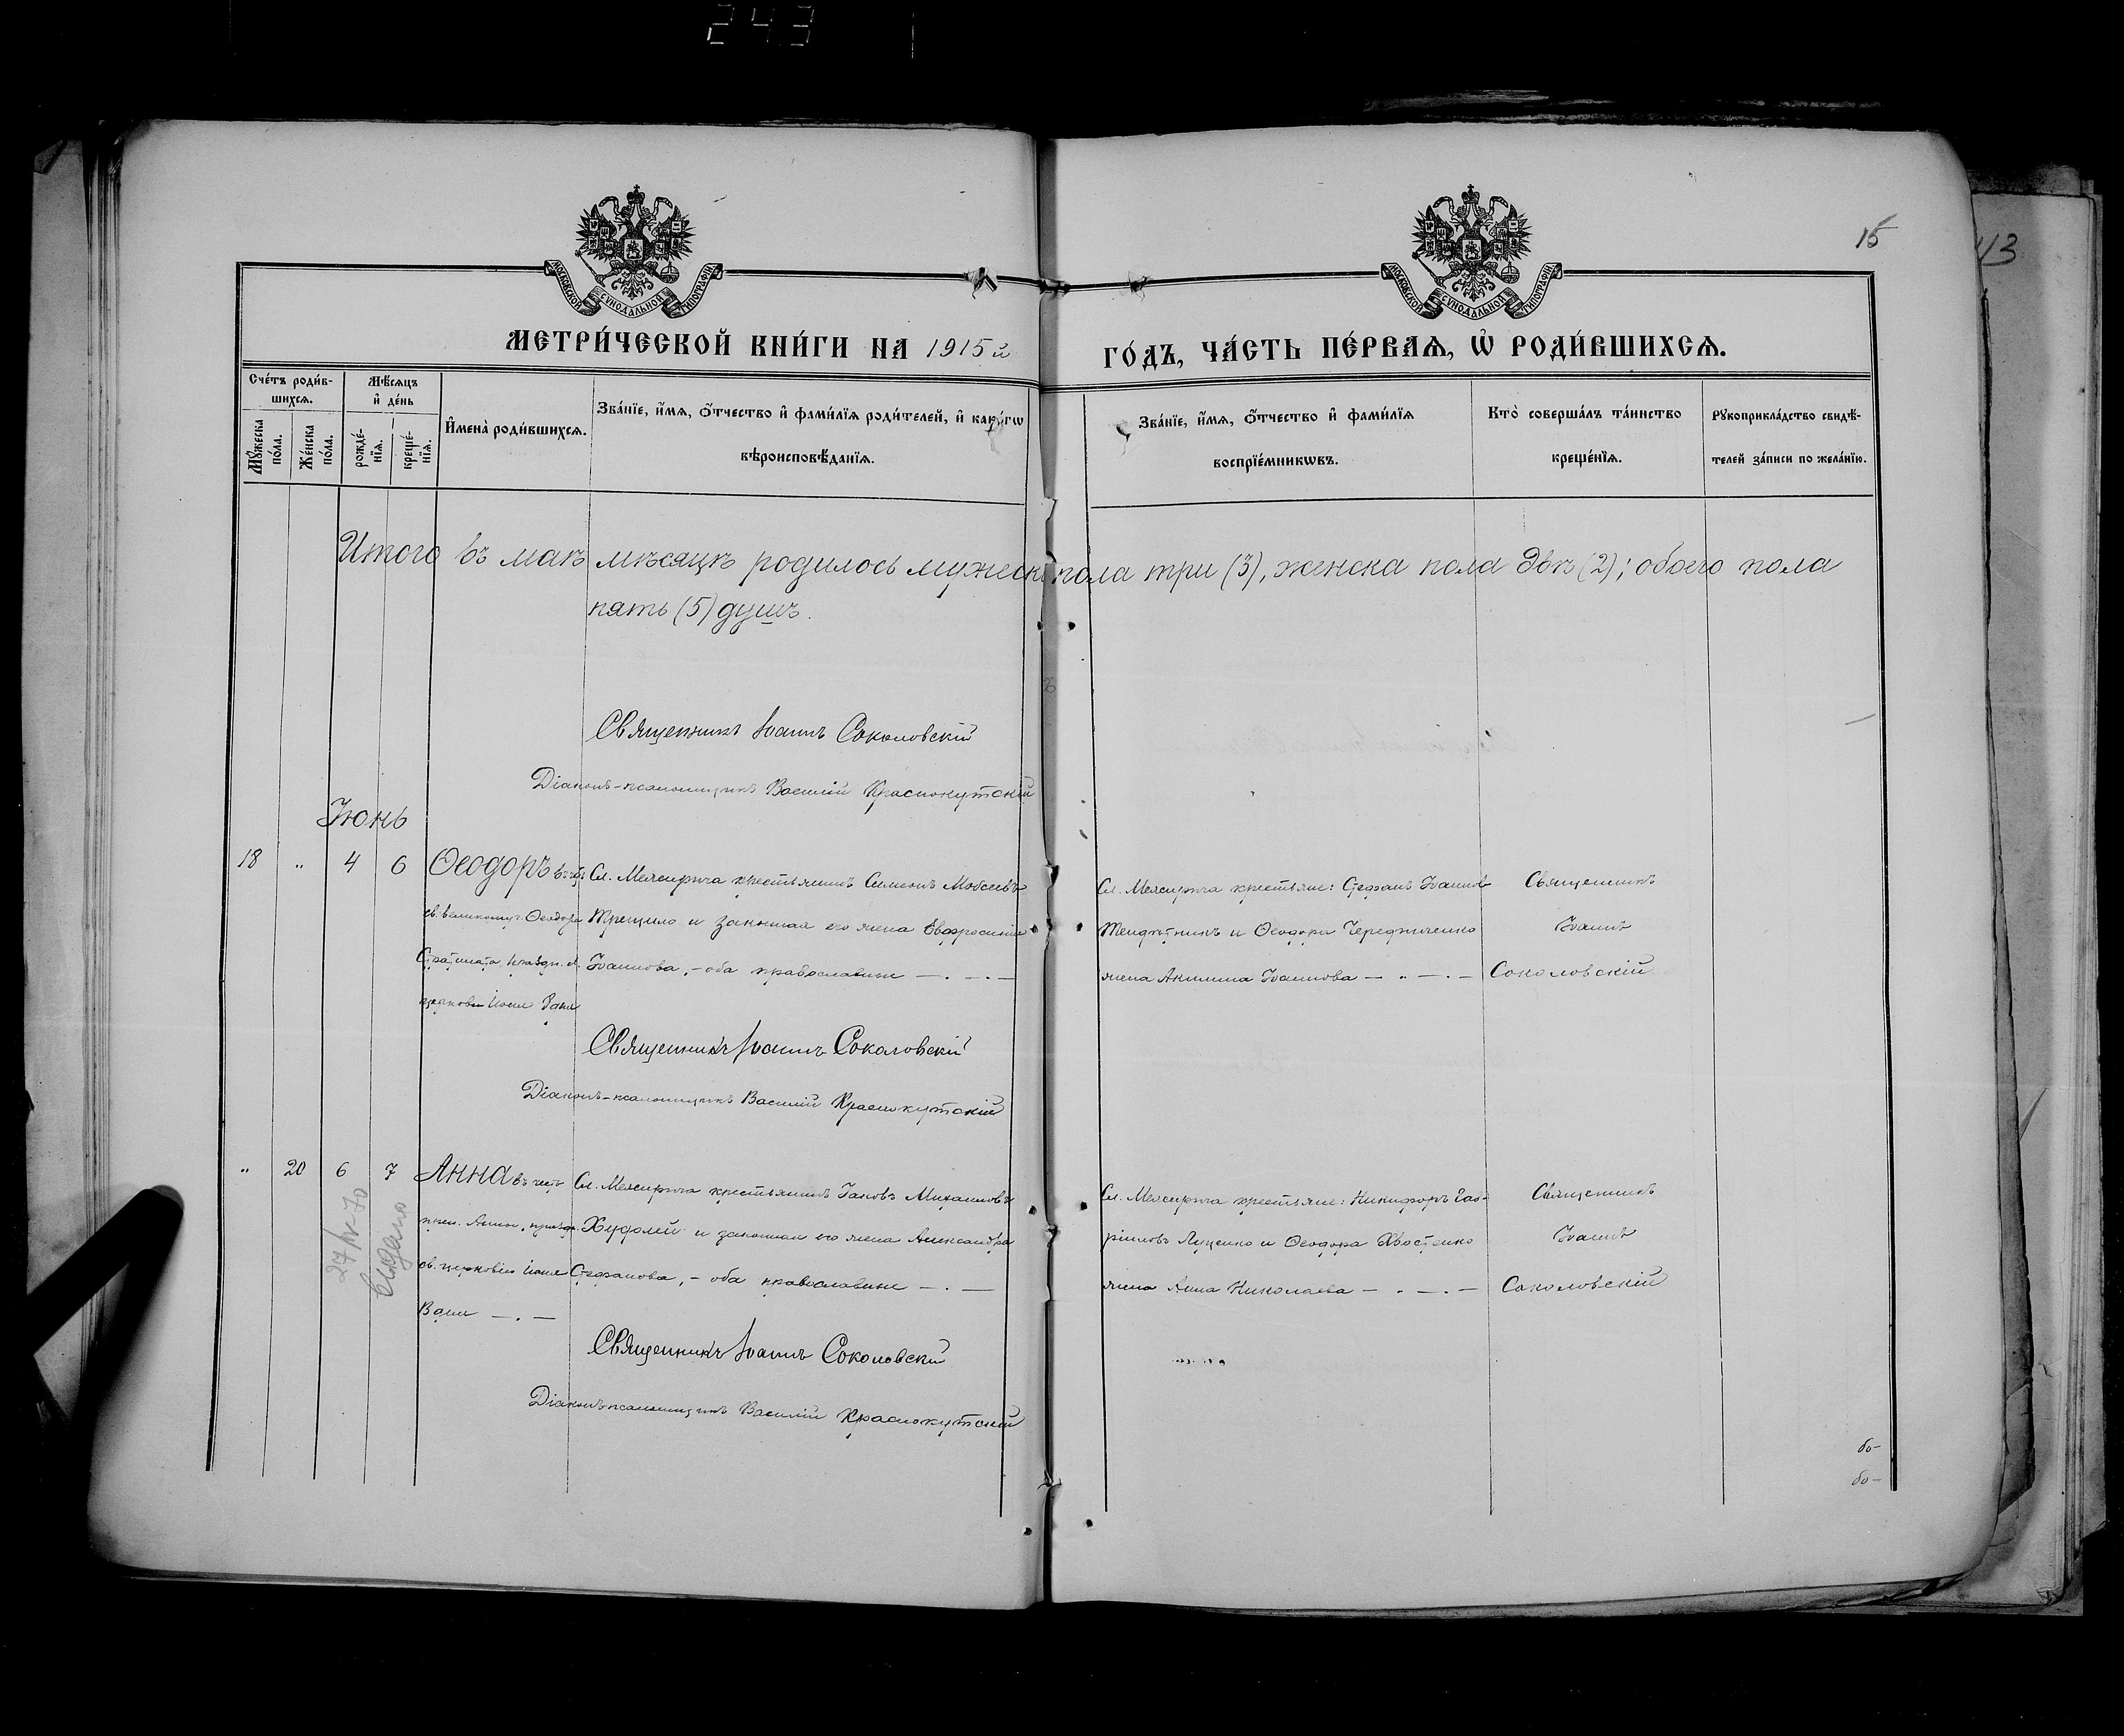 243
15
43
МОСКОВСКОЙ СУНОДАЛЬНОЙ ТИПОГРАФІИ
МОСКОВСКОЙ СУНОДАЛЬНОЙ ТИПОГРАФІИ
МЕТРИ́ЧЕСКОЙ КНИ́ГИ НА 1915й ГО́ДЪ, ЧА́СТЬ ПЕ́РВАѦ, Ѡ҆ РОДИ́ВШИХСѦ.
Сче́тъ роди́в-
шихсѧ.
Мꙋ́жеска по́ла.
Же́нска по́ла.
Мѣ́сѧцъ
и҆ де́нь
рожде́-
нїѧ.
креще́-
нїѧ.
И҆мена̀ роди́вшихсѧ.
Зва́нїе, и҆́мѧ, ѻ҆́тчество и҆ фами́лїѧ роди́телей, и҆ как҄гѡ
вѣроисповѣ́данїѧ.
Зва́нїе, и҆́мѧ, ѻ҆́тчество и҆ фами́лїѧ
воспрїе́мникѡвъ.
Кто̀ соверша́лъ та́инство
креще́нїѧ.
Рꙋкоприкла́дство свидѣ́-
телей за́писи по жела́нїю.
Итого въ маѣ мѣсяцѣ родилось мужеска пола три (3), женска пола двѣ (2); обоего пола
пять (5) душъ.
Священникъ Іоаннъ Соколовскій
Діаконъ-псаломщикъ Василій Краснокутскій
Іюнь
18 " 4 6
Ѳеодоръ въ честь
св. великомуч. Ѳеодора
Стратилата, праздн. св.
церковію Іюня 8 дня
Сл. Межирича крестьянинъ Симеонъ Моѵсеевъ
Трещило и законная его жена Евфросинія
Іоаннова, - оба православные
Сл. Межирича крестьяне: Стефанъ Іоаннов
и Ѳеодора Чередниченко
жена Акилина Іоаннова
Священникъ
Іоаннъ
Соколовскій
Священникъ Іоаннъ Соколовскій
Діаконъ-псаломщикъ Василій Краснокутскій
" 20 6 7
Анна въ честь
прав. Анны, праздн.
св. церковію Іюля
дня
Сл. Межирича крестьянинъ Іаковъ Михаиловъ
Худолей и законная его жена Александра
Стефанова, - оба православные
Сл. Межирича крестьяне: Никифоръ Гав-
ріиловъ Луценко и Ѳеодора Хвостенко
жена Анна Николаева
Священникъ
Іоаннъ
Соколовскій
Священникъ Іоаннъ Соколовскій
Діаконъ-псаломщикъ Василій Краснокутскій